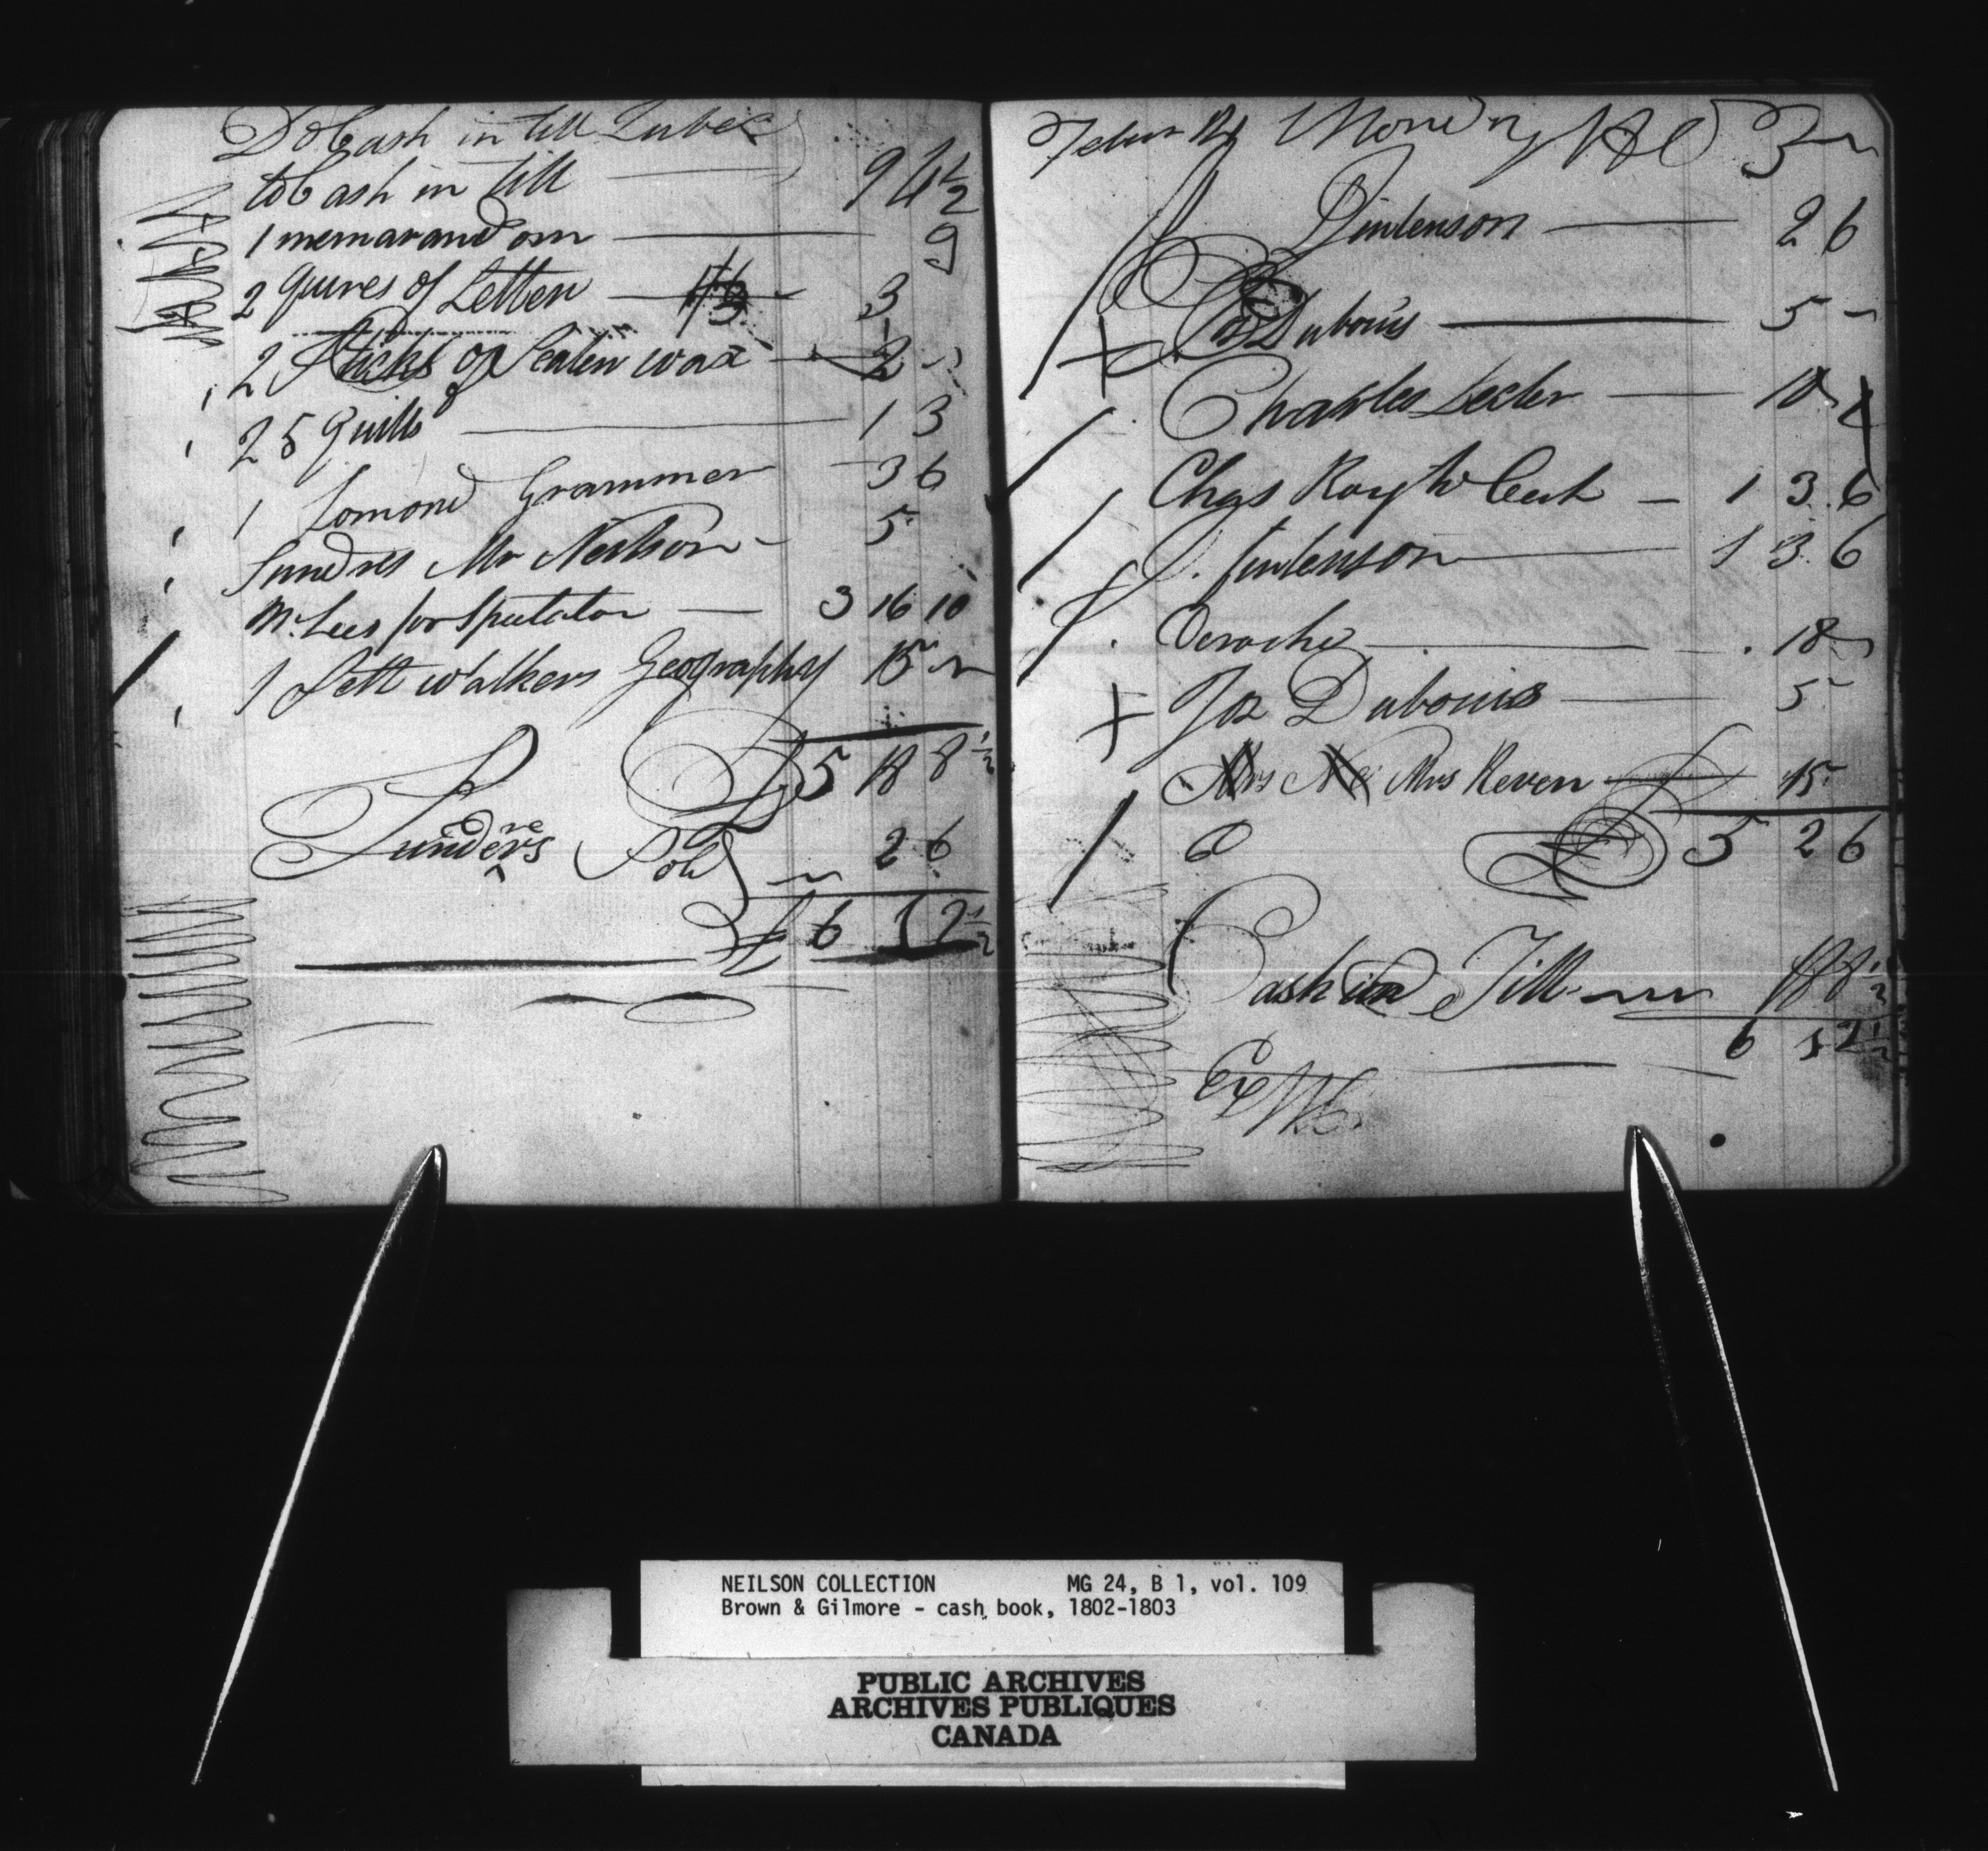 Do Cash in till
to Cash in till 9 4½
1 memarandom 9
2 quires of Letter 3
2 Sticks of Sealen wax 2
25 Quills 1 3
1 Lomond Grammer 3 6
Sundres Mr Neilson 5
Mr. Lees for Spectator 3 16 10
1 Sett Walkers Geography 15
£ 5 18 8½
Sunderes Sold 2 6
£ 6 1 2½
Monday 3
2 6
Dubouis 5
Charles 10
Chas Roy 1 3 6
J. 1 3 6
Deroche 18
Jos Dubouis 5
Mrs Reven 15
£ 5 2 6
Cash in Till 18 8½
6 1 2½
NEILSON COLLECTION MG 24, B 1, vol. 109
Brown & Gilmore - cash book, 1802-1803
PUBLIC ARCHIVES
ARCHIVES PUBLIQUES
CANADA